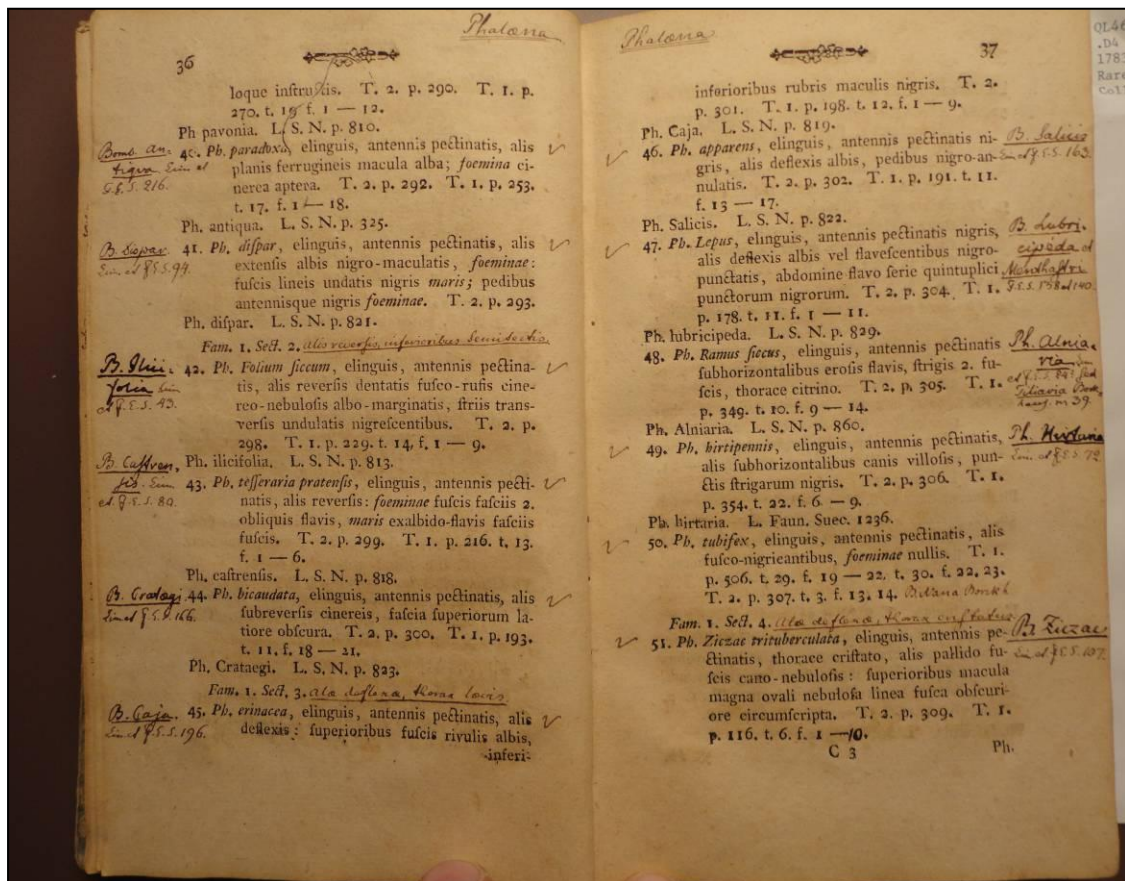 Phalæna
36
loque inſtructis. T. 2. p. 290. T. 1. p.
270. t. 19 f. 1 — 12.
Ph pavonia. L. S. N. p. 810.
Bomb. An-
tiqua
F.E.S. 216.
40. Ph. paradoxa, elinguis, antennis pectinatis, alis
planis ferrugineis macula alba; foemina ci-
nerea aptera. T. 2. p. 292. T. 1. p. 253.
t. 17. f. 1 — 18.
Ph. antiqua. L. S. N. p. 325.
B. Dispar.
Lin. et F.E.S. 94.
41. Ph. diſpar, elinguis, antennis pectinatis, alis
extenſis albis nigro-maculatis, foeminae:
fuſcis lineis undatis nigris maris; pedibus
antennisque nigris foeminae. T. 2. p. 293.
Ph. diſpar. L. S. N. p. 821.
Fam. 1. Sect. 2. alis reversis, inferioribus Semitectis.
B. Ilici-
folia Lin.
et F.E.S. 43.
42. Ph. Folium ſiccum, elinguis, antennis pectina-
tis, alis reverſis dentatis fuſco-rufis cine-
reo-nebuloſis albo-marginatis, ſtriis trans-
verſis undulatis nigreſcentibus. T. 2. p.
298. T. 1. p. 229. t. 14. f. 1 — 9.
Ph. ilicifolia. L. S. N. p. 813.
B. Castren-
sis. Linn.
et. F.E.S. 80.
43. Ph. teſſeraria pratenſis, elinguis, antennis pecti-
natis, alis reverſis: foeminae fuſcis faſciis 2.
obliquis flavis, maris exalbido-flavis faſciis
fuſcis. T. 2. p. 299. T. 1. p. 216. t. 13.
f. 1 — 6.
Ph. caſtrenſis. L. S. N. p. 818.
B. Cratægi.
Lin et F.E.S. 166.
44. Ph. bicaudata, elinguis, antennis pectinatis, alis
ſubreverſis cinereis, faſcia ſuperiorum la-
tiore obſcura. T. 2. p. 300. T. 1. p. 193.
t. 11. f. 18 — 21.
Ph. Crataegi. L. S. N. p. 823.
Fam. 1. Sect. 3. alæ deflexæ, thorax lævis
B. Caja.
Lin et F.E.S. 196.
45. Ph. erinacea, elinguis, antennis pectinatis, alis
deflexis: ſuperioribus fuſcis rivulis albis,
inferi-
Phalæna
37
inferioribus rubris maculis nigris. T. 2.
p. 301. T. 1. p. 198. t. 12. f. 1 — 9.
Ph. Caja. L. S. N. p. 819.
46. Ph. apparens, elinguis, antennis pectinatis ni-
gris, alis deflexis albis, pedibus nigro-an-
nulatis. T. 2. p. 302. T. 1. p. 191. t. 11.
f. 13 — 17.
B. Salicis
Lin et F.E.S. 163.
Ph. Salicis. L. S. N. p. 822.
47. Ph. Lepus, elinguis, antennis pectinatis nigris,
alis deflexis albis vel flaveſcentibus nigro-
punctatis, abdomine flavo ſerie quintuplici
punctorum nigrorum. T. 2. p. 304. T. 1.
p. 178. t. 11. f. 1 — 11.
B. Lubri-
cipeda et
Menthastri
F.E.S. 138 et 140.
Ph. lubricipeda. L. S. N. p. 829.
48. Ph. Ramus ſiccus, elinguis, antennis pectinatis
ſubhorizontalibus eroſis flavis, ſtrigis 2. fu-
ſcis, thorace citrino. T. 2. p. 305. T. 1.
p. 349. t. 10. f. 9 — 14.
Ph. Alnia-
ria Lin
Tiliaria Bork-
haus. nr 39.
Ph. Alniaria. L. S. N. p. 860.
49. Ph. hirtipennis, elinguis, antennis pectinatis,
alis ſubhorizontalibus canis villoſis, pun-
ctis ſtrigarum nigris. T. 2. p. 306. T. 1.
p. 354. t. 22. f. 6 — 9.
Ph. Hirtaria
Lin. et F.E.S. 72.
Ph. hirtaria. L. Faun. Suec. 1236.
50. Ph. tubifex, elinguis, antennis pectinatis, alis
fuſco-nigricantibus, foeminae nullis. T. 1.
p. 506. t. 29. f. 19 — 22. t. 30. f. 22. 23.
T. 2. p. 307. t. 3. f. 13. 14. B. Nana Borkh
Fam. 1. Sect. 4. Alæ deflexæ, thorax cristatus
51. Ph. Ziczac trituberculata, elinguis, antennis pe-
ctinatis, thorace criſtato, alis pallido fu-
ſcis cano-nebuloſis: ſuperioribus macula
magna ovali nebuloſa linea fuſca obſcuri-
ore circumſcripta. T. 2. p. 309. T. 1.
p. 116. t. 6. f. 1 — 10.
B. Ziczac
Lin et F.E.S. 107.
C 3
Ph.
QL46
.D4
1783
Rare
Coll